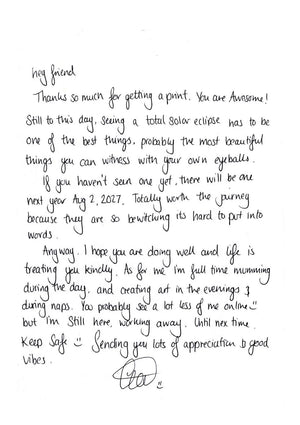 hey friend
Thanks so much for getting a print. You are Awesome!
Still to this day, seeing a total solar eclipse has to be
one of the best things, probably the most beautiful
things you can witness with your own eyeballs.
If you haven't seen one yet, there will be one
next year Aug 2, 2027. Totally worth the journey
because they are so bewitching its hard to put into
words.
Anyway. I hope you are doing well and life is
treating you kindly. As for me I'm full time mumming
during the day, and creating art in the evenings &
during naps. You probably see a lot less of me online
but I'm still here, working away. Until nex time.
Keep Safe Sending you lots of appreciation & good
vibes.